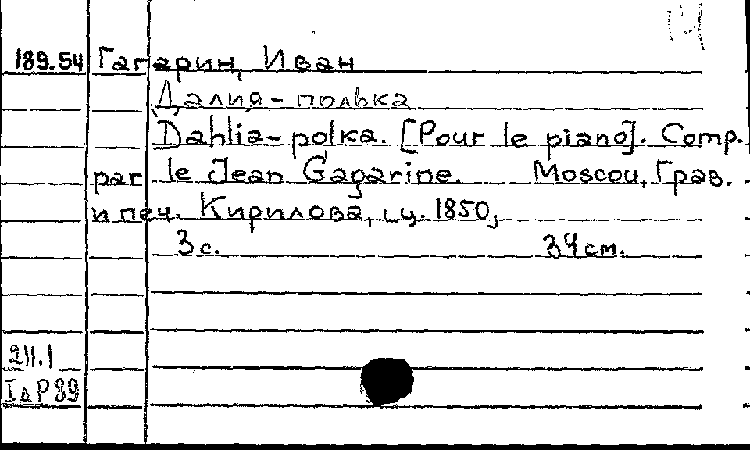 189.54 Гагарин, Иван
Далия-полька
Dahlia-polka. [Pour le piano]. Comp.
par le Jean Gagarine. Moscou, Грав.
и печ. Кирилова, ц. 1850,
3 с. 34 см.
211.1
IΔP89